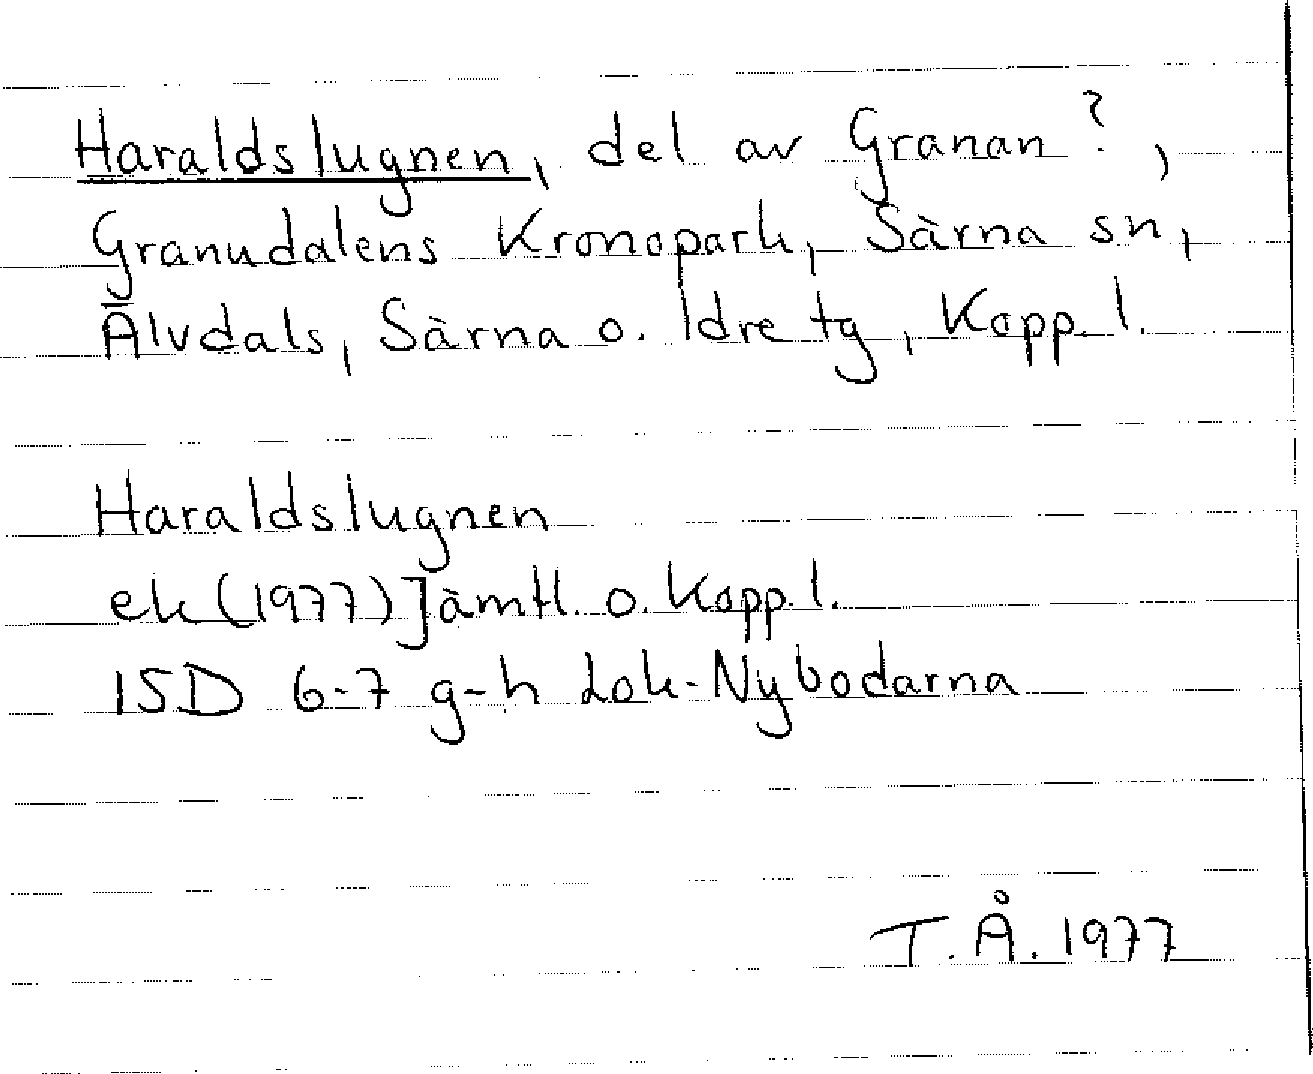 Haraldslugnen, del av Granan?,
Granudalens Kronopark, Särna sn,
Älvdals, Särna o. Idre tg, Kopp. l.
Haraldslugnen
ek (1977) Jämtl. o. Kopp. l.
15D 6-7 g-h Lok-Nybodarna
T.Å. 1977